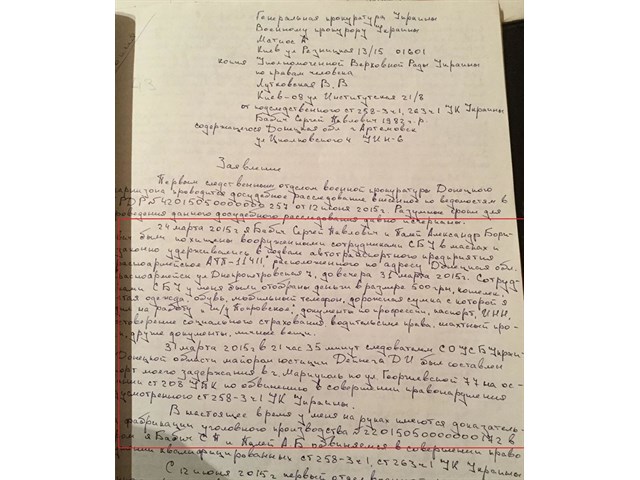 Генеральная прокуратура Украины
Военному прокурору Украины
Матиос А
Киев ул Резницкая 13/15 01601
копия Уполномоченной Верховной Рады Украины
по правам человека
Лутковская В. В
Киев-08 ул Институтская 21/8
от подследственного ст 258-3 ч1, 263 ч1 УК Украины
Бабич Сергей Павлович 1982 г. р.
содержащегося Донецкая обл г Артемовск
ул Циолковского 4 УИН-6
Заявление
Первым следственным отделом военной прокуратуры Донецкого
гарнизона проводится досудебное расследование внесеное по ведомостям в
РДР №42015050000000257 от 12 июня 2015г. Разумные сроки для
проведения данного досудебного расследования давно исчерпаны.
24 марта 2015г я Бабич Сергей Павлович и Александр Бори-
были похищены вооруженными сотрудниками СБУ в масках и
законно удерживались в подвале автотранспортного предприятия
расноармейское АТП-11411, расположенного по адресу Донецкая обл.
расноармейск ул Днепропетровская 7, до вечера 31 марта 2015г. Сотруд-
ками СБУ у меня были отобраны деньги в размере 500 грн, кошелек,
тая одежда, обувь, мобильный телефон, дорожная сумка с которой я
на работу ш/у Покровское, документы по профессии, паспорт, ИНН,
товерение социального страхования водительские права, шахтный про-
, другие документы, личные вещи.
31 марта 2015г в 21 час 35 минут следователем СО УСБ Украин
Донецкой области майором юстиции Дейнега Д И был составлен
орт моего задержания в г. Мариуполь по ул Георгиевской 77 на ос-
ст 208 УПК по обвинению в совершении правонарушения
усмотренного ст 258-3 ч1 УК Украины.
В настоящее время у меня на руках имеются доказатель-
фабрикации уголовного производства в
я Бабич С П и А. Б обвиняемся в совершении право
квалифицированных ст 258-3 ч1, ст 263 ч1 УК Украины
С 12 июня 2015г первый отдел